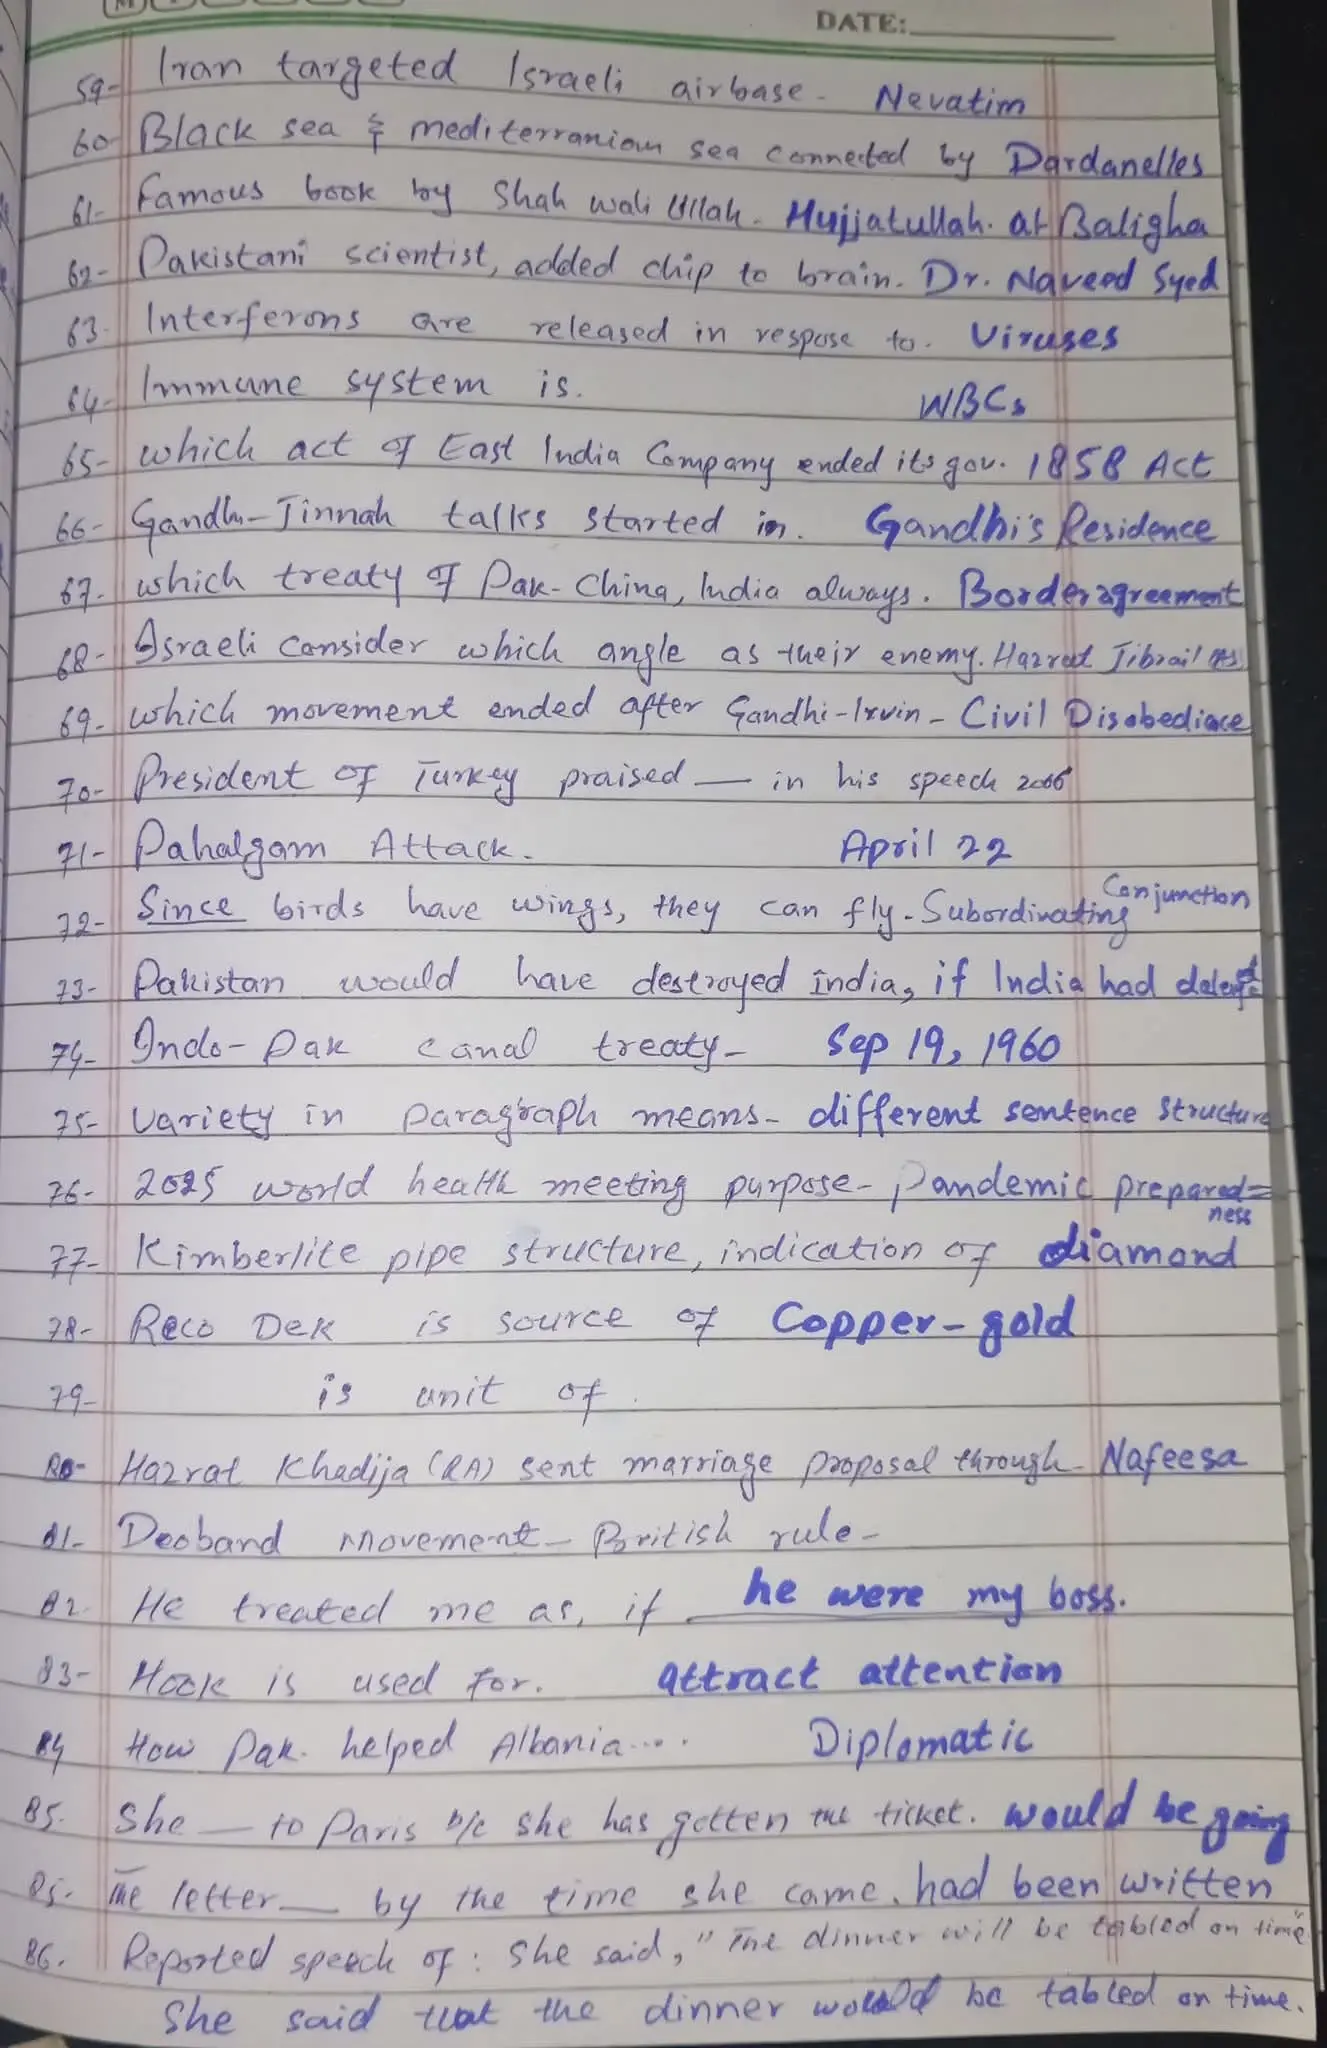 DATE:
59- Iran targeted Israeli airbase- Nevatim
60- Black sea & mediterranian sea connected by Dardanelles
61- Famous book by Shah wali Ullah. Hujjatullah. al-Baligha
62- Pakistani scientist, added chip to brain. Dr. Naveed Syed
63- Interferons are released in respose to. Viruses
64- Immune system is. WBCs
65- which act of East India Company ended its gov. 1858 Act
66- Gandhi-Jinnah talks started in. Gandhi's Residence
67- which treaty of Pak-China, India always. Border agreement
68- Israeli consider which angle as their enemy. Hazrat Jibrail AS
69- which movement ended after Gandhi-Irvin- Civil Disobediace
70- President of Turkey praised — in his speech
71- Pahalgam Attack- April 22
72- Since birds have wings, they can fly- Subordinating Conjunction
73- Pakistan would have destroyed india, if India had
74- Indo-Pak canal treaty- Sep 19, 1960
75- Variety in paragraph means- different sentence structure
76- 2025 world health meeting purpose- Pandemic prepared=
ness
77- Kimberlite pipe structure, indication of diamond
78- Reco Dek is source of Copper-gold
79- is unit of
80- Hazrat Khadija (RA) sent marriage proposal through- Nafeesa
81- Deoband movement- British rule-
82- He treated me as, if he were my boss.
83- Hook is used for. attract attention
84 How Pak. helped Albania.... Diplomatic
85. She — to Paris b/c she has gotten the ticket. would be going
85. The letter — by the time she came. had been written
86. Reported speech of: She said, "The dinner will be tabled on time"
She said that the dinner would be tabled on time.